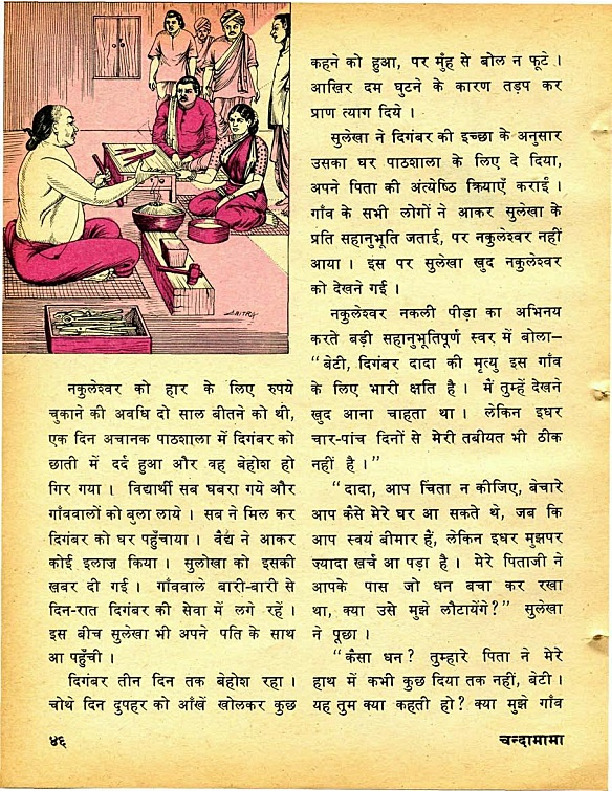 नकुलेश्वर को हार के लिए रुपये
चुकाने की अवधि दो साल बीतने को थी,
एक दिन अचानक पाठशाला में दिगंबर को
छाती में दर्द हुआ और वह बेहोश हो
गिर गया । विद्यार्थी सब घबरा गये और
गाँववालों को बुला लाये । सब ने मिल कर
दिगंबर को घर पहुँचाया । वैद्य ने आकर
कोई इलाज किया । सुलोखा को इसकी
खबर दी गई । गाँववाले बारी-बारी से
दिन-रात दिगंबर की सेवा में लगे रहें ।
इस बीच सुलेखा भी अपने पति के साथ
आ पहुँची ।
दिगंबर तीन दिन तक बेहोश रहा ।
चोथे दिन दुपहर को आँखें खोलकर कुछ
कहने को हुआ, पर मुँह से बोल न फूटे ।
आखिर दम घुटने के कारण तड़प कर
प्राण त्याग दिये ।
सुलेखा ने दिगंबर की इच्छा के अनुसार
उसका घर पाठशाला के लिए दे दिया,
अपने पिता की अंत्येष्ठि क्रियाएँ कराईं ।
गाँव के सभी लोगों ने आकर सुलेखा के
प्रति सहानुभूति जताई, पर नकुलेश्वर नहीं
आया । इस पर सुलेखा खुद नकुलेश्वर
को देखने गई ।
नकुलेश्वर नकली पीड़ा का अभिनय
करते बड़ी सहानुभूतिपूर्ण स्वर में बोला–
"बेटी, दिगंबर दादा की मृत्यु इस गाँव
के लिए भारी क्षति है । मैं तुम्हें देखने
खुद आना चाहता था । लेकिन इधर
चार-पांच दिनों से मेरी तबीयत भी ठीक
नहीं है ।"
"दादा, आप चिंता न कीजिए, बेचारे
आप कैसे मेरे घर आ सकते थे, जब कि
आप स्वयं बीमार हैं, लेकिन इधर मुझपर
ज्यादा खर्च आ पड़ा है । मेरे पिताजी ने
आपके पास जो धन बचा कर रखा
था, क्या उसे मुझे लौटायेंगे?" सुलेखा
ने पूछा ।
"कैसा धन? तुम्हारे पिता ने मेरे
हाथ में कभी कुछ दिया तक नहीं, बेटी ।
यह तुम क्या कहती हो? क्या मुझे गाँव
४६
चन्दामामा